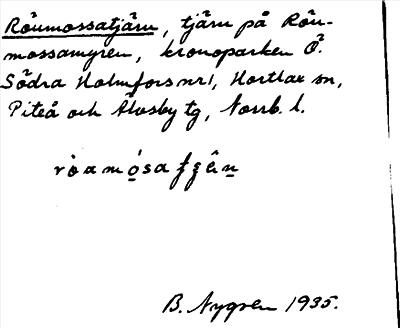 Röumossatjärn, tjärn på Röu-
mossamyren, kronoparken Ö.
Södra Holmfors nr 1, Hortlax sn,
Piteå och Älvsby tg, Norrb. l.
B. Nygren 1935.